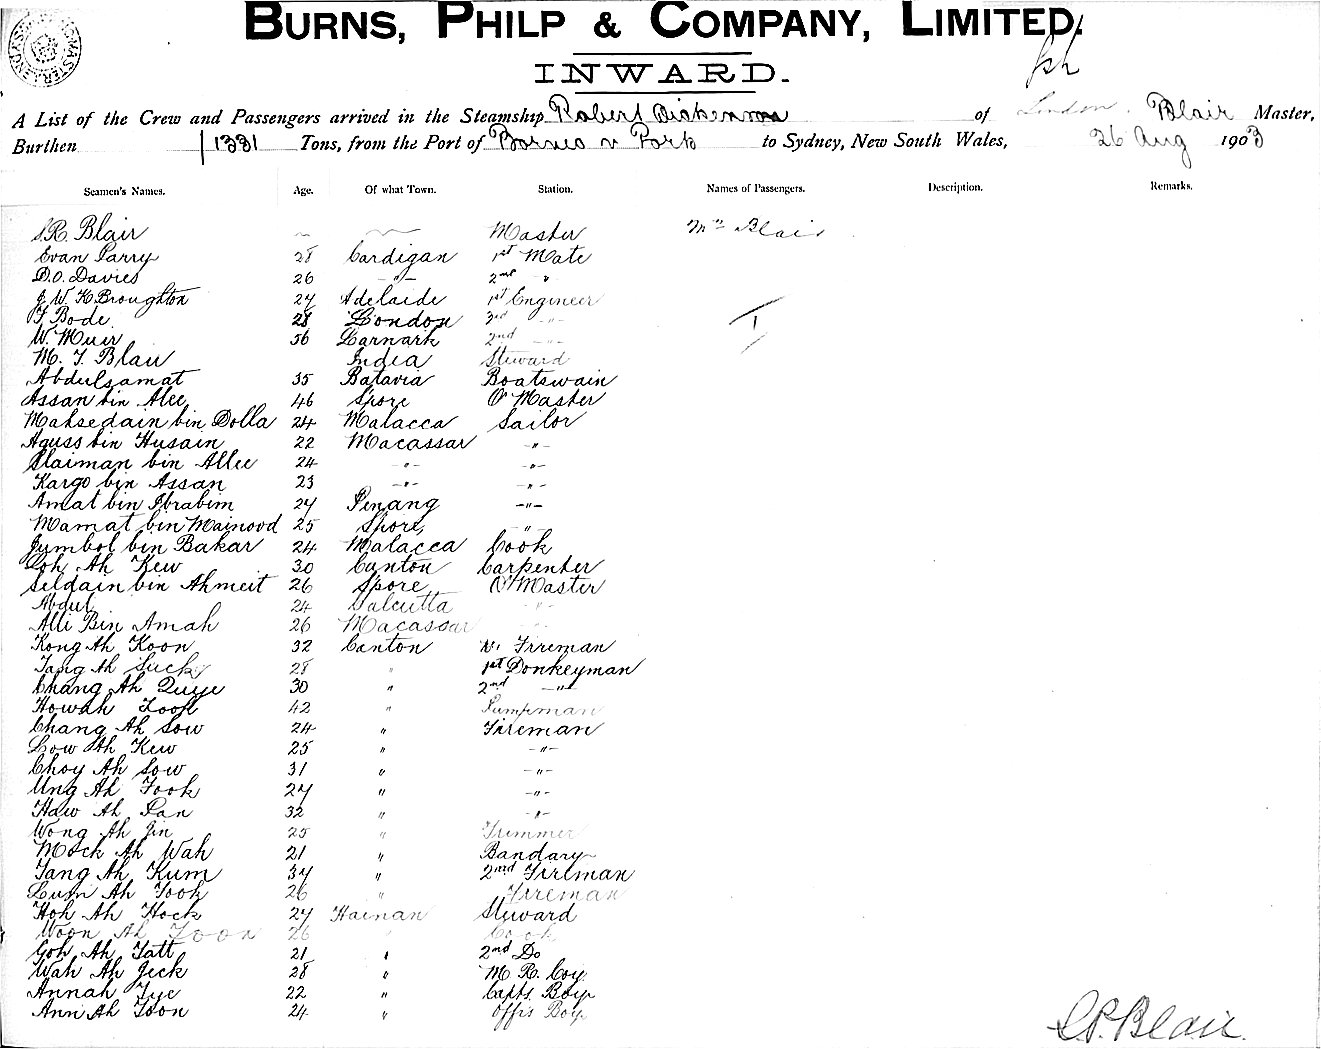 BURNS, PHILP & COMPANY, LIMITED.
INWARD.
A List of the Crew and Passengers arrived in the Steamship Robert Dickenson of London. Blair Master,
Burthen 1331 Tons, from the Port of Borneo v Pork to Sydney, New South Wales, 26 Aug 1903
Seamen's Names. Age. Of what Town. Station. Names of Passengers. Description. Remarks.
S.R. Blair Master Mrs Blair
Evan Parry 28 Cardigan 1st Mate
D.O. Davies 26 -"- 2nd "
J. W. K. Broughton 27 Adelaide 1st Engineer
T Bode 28 London 3rd -"-
W. Muir 56 Larnark 2nd -"-
M. T. Blau India Steward
Abdulsamat 35 Batavia Boatswain
Assan bin Alee 46 Spore Q' Master
Mahsedain bin Dolla 24 Malacca Sailor
Aguss bin Husain 22 Macassar -"-
Slaiman bin Allee 24 -"- -"-
Kargo bin Assan 23 -"- -"-
Amat bin Ibrabim 27 Penang -"-
Mamat bin Mainood 25 Spore, -"-
Jumbol bin Bakar 24 Malacca Cook
Loh Ah Kew 30 Canton Carpenter
Seldain bin Ahmeit 26 Spore Q' Master
Abdul 24 Calcutta -"-
Alli Bin Amah 26 Macassar -"-
Kong Ah Koon 32 Canton N. Fireman
Tang Ah Suck 28 " 1st Donkeyman
Chang Ah Quye 30 " 2nd -"-
Howah Took 42 " Pumpman
Chang Ah Sow 24 " Fireman
Low Ah Kew 25 " -"-
Choy Ah Sow 31 " -"-
Ung Ah Fook 27 " -"-
Haw Ah Pan 32 " -"-
Wong Ah Jin 25 " Trimmer
Mock Ah Wah 21 " Bandary
Tang Ah Kum 37 " 2nd Fireman
Lum Ah Took 26 " Fireman
Hoh Ah Hock 27 Hainan Steward
Woon Ah Toon 26 " Cook
Goh Ah Tatt 21 " 2nd Do
Wah Ah Jeck 28 " M. R. Boy
Annah Tye 22 " Capts. Boy
Ann Ah Toon 24 " Offrs Boy
S.R. Blair.